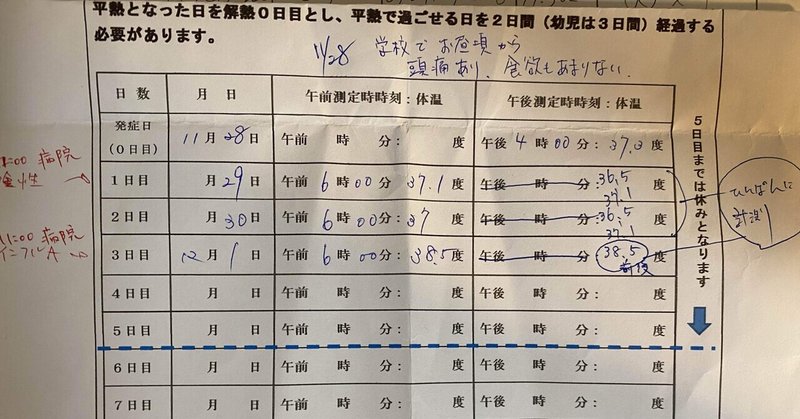 平熱となった日を解熱０日目とし、平熱で過ごせる日を２日間（幼児は３日間）経過する
必要があります。
11/28 学校でお昼頃から
頭痛あり、食欲もあまりない.
日数 月 日 午前測定時時刻：体温 午後測定時時刻：体温
発症日
（0日目） 11月28日 午前 時 分： 度 午後 4時00分：37.3度
1日目 月29日 午前 6時00分：37.1度 午後 時 分：36.5 37.1度
2日目 月30日 午前 6時00分：37度 午後 時 分：36.5 37.1度
3日目 12月1日 午前 6時00分：38.5度 午後 時 分：38.5 前後 度
4日目 月 日 午前 時 分： 度 午後 時 分： 度
5日目 月 日 午前 時 分： 度 午後 時 分： 度
6日目 月 日 午前 時 分： 度 午後 時 分： 度
7日目 月 日 午前 時 分： 度 午後 時 分： 度
５日目までは休みとなります
ひんぱんに
計測
:00 病院
陰性
11:00 病院
インフルA